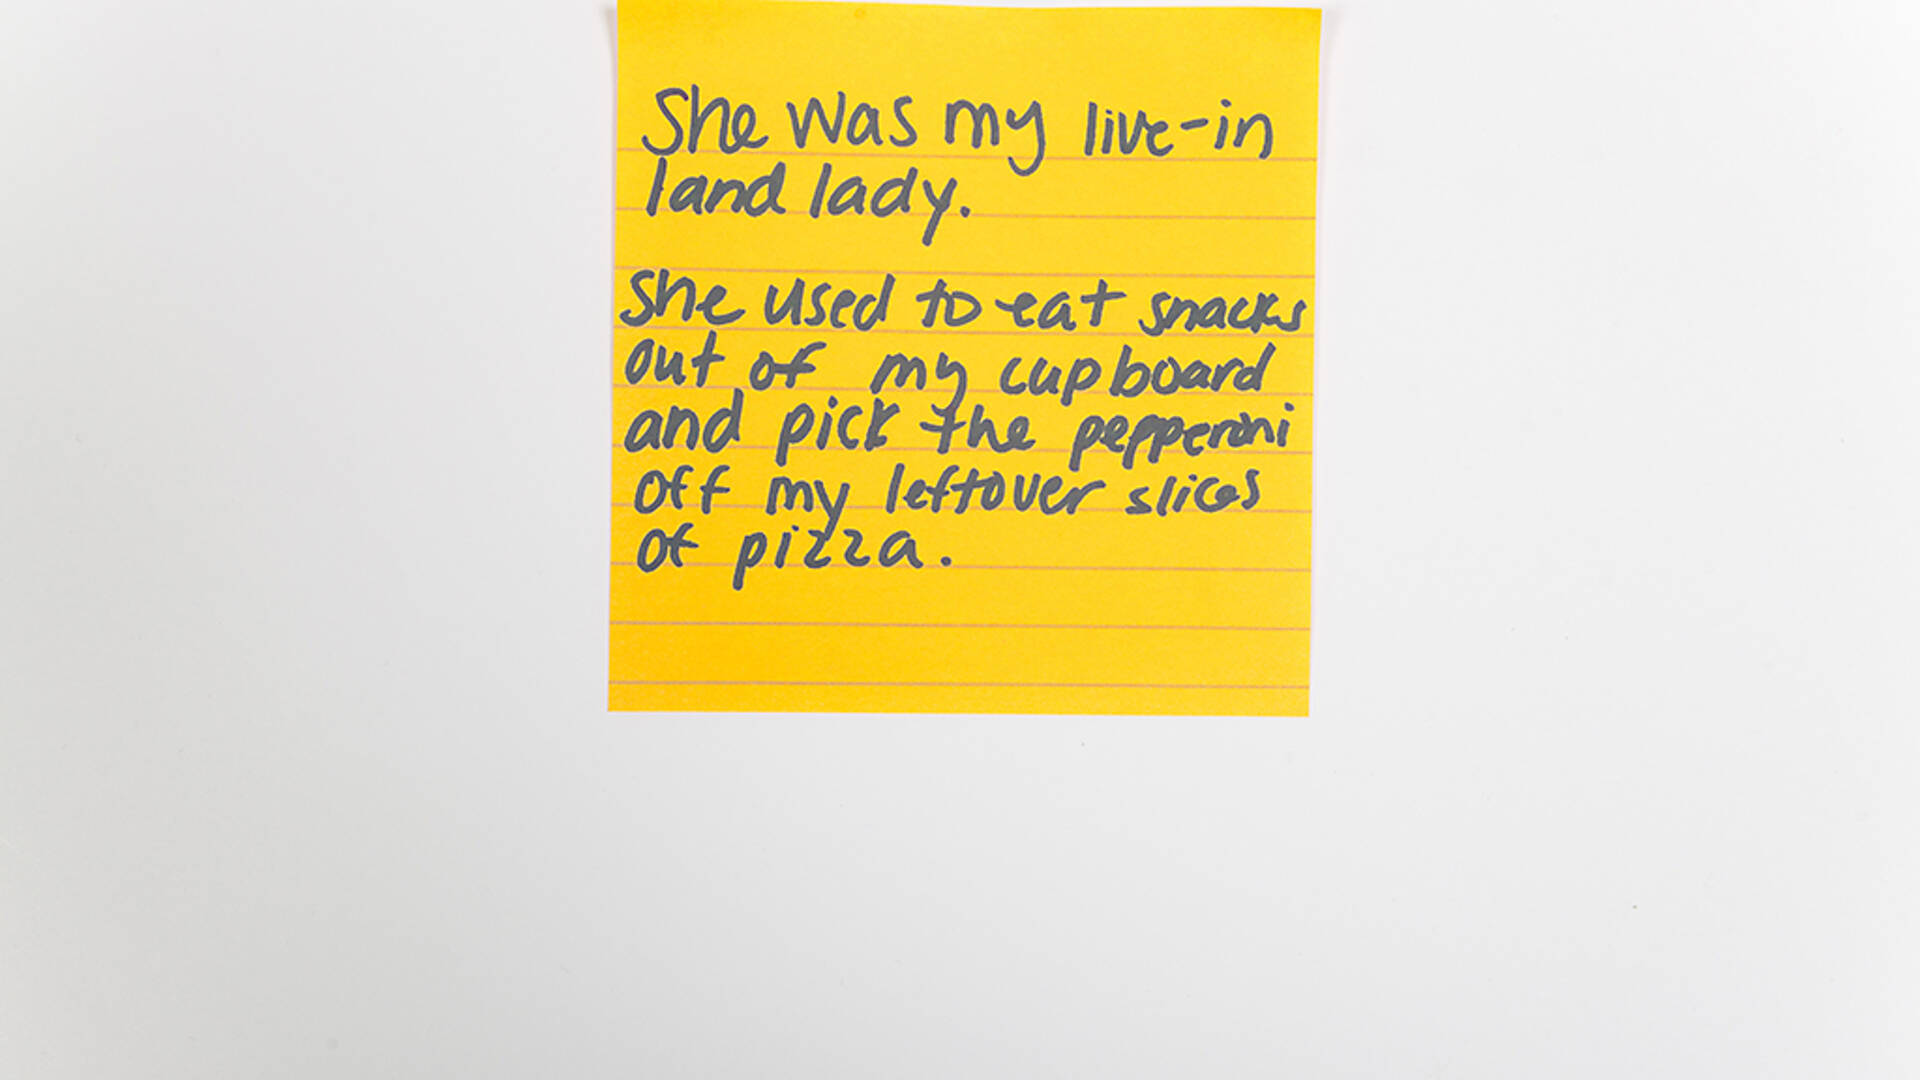 She was my live-in
land lady.
She used to eat snacks
out of my cupboard
and pick the pepperoni
off my leftover slices
of pizza.